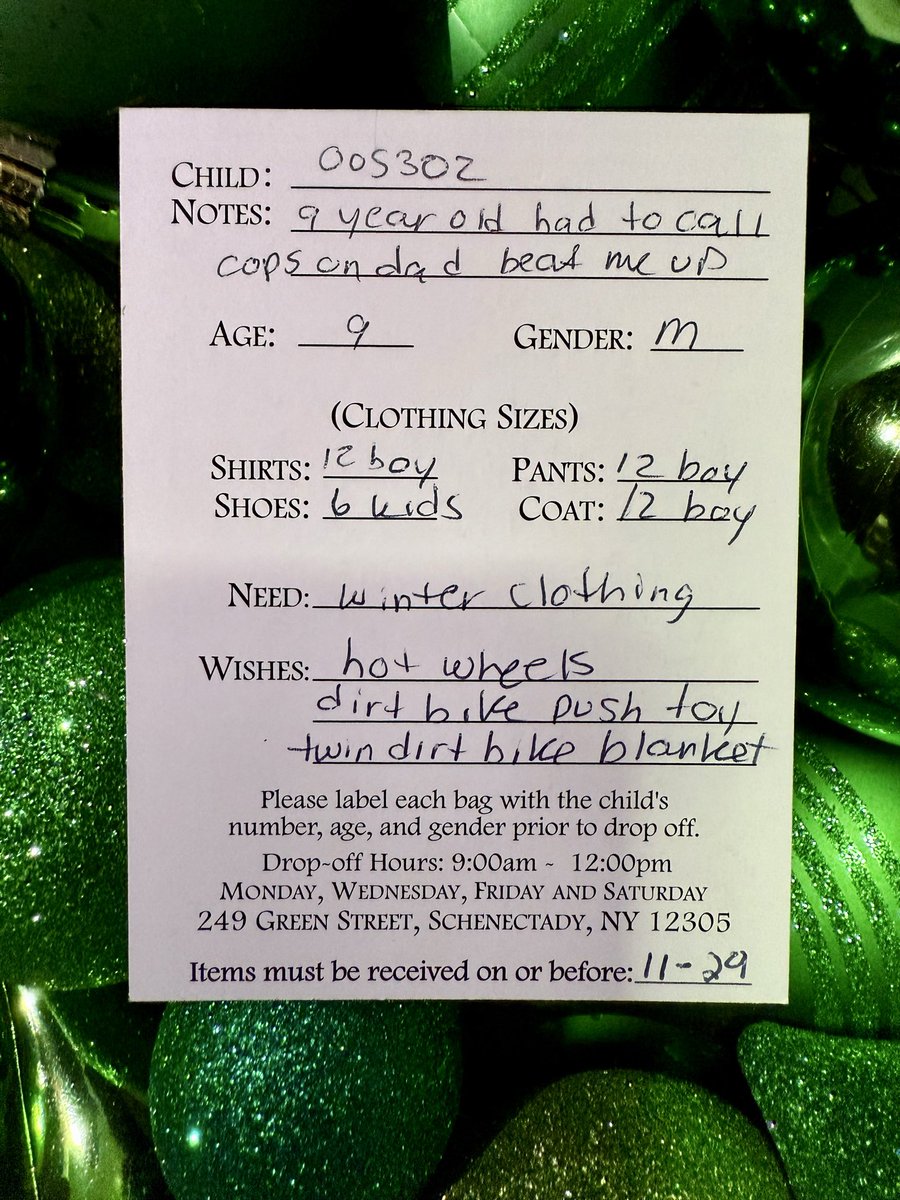 CHILD: 005302
NOTES: 9 year old had to call
cops on dad beat me up
AGE: 9 GENDER: M
(CLOTHING SIZES)
SHIRTS: 12 boy PANTS: 12 boy
SHOES: 6 kids COAT: 12 boy
NEED: winter clothing
WISHES: hot wheels
dirt bike push toy
twin dirt bike blanket
Please label each bag with the child's
number, age, and gender prior to drop off.
Drop-off Hours: 9:00am - 12:00pm
MONDAY, WEDNESDAY, FRIDAY AND SATURDAY
249 GREEN STREET, SCHENECTADY, NY 12305
Items must be received on or before: 11-29